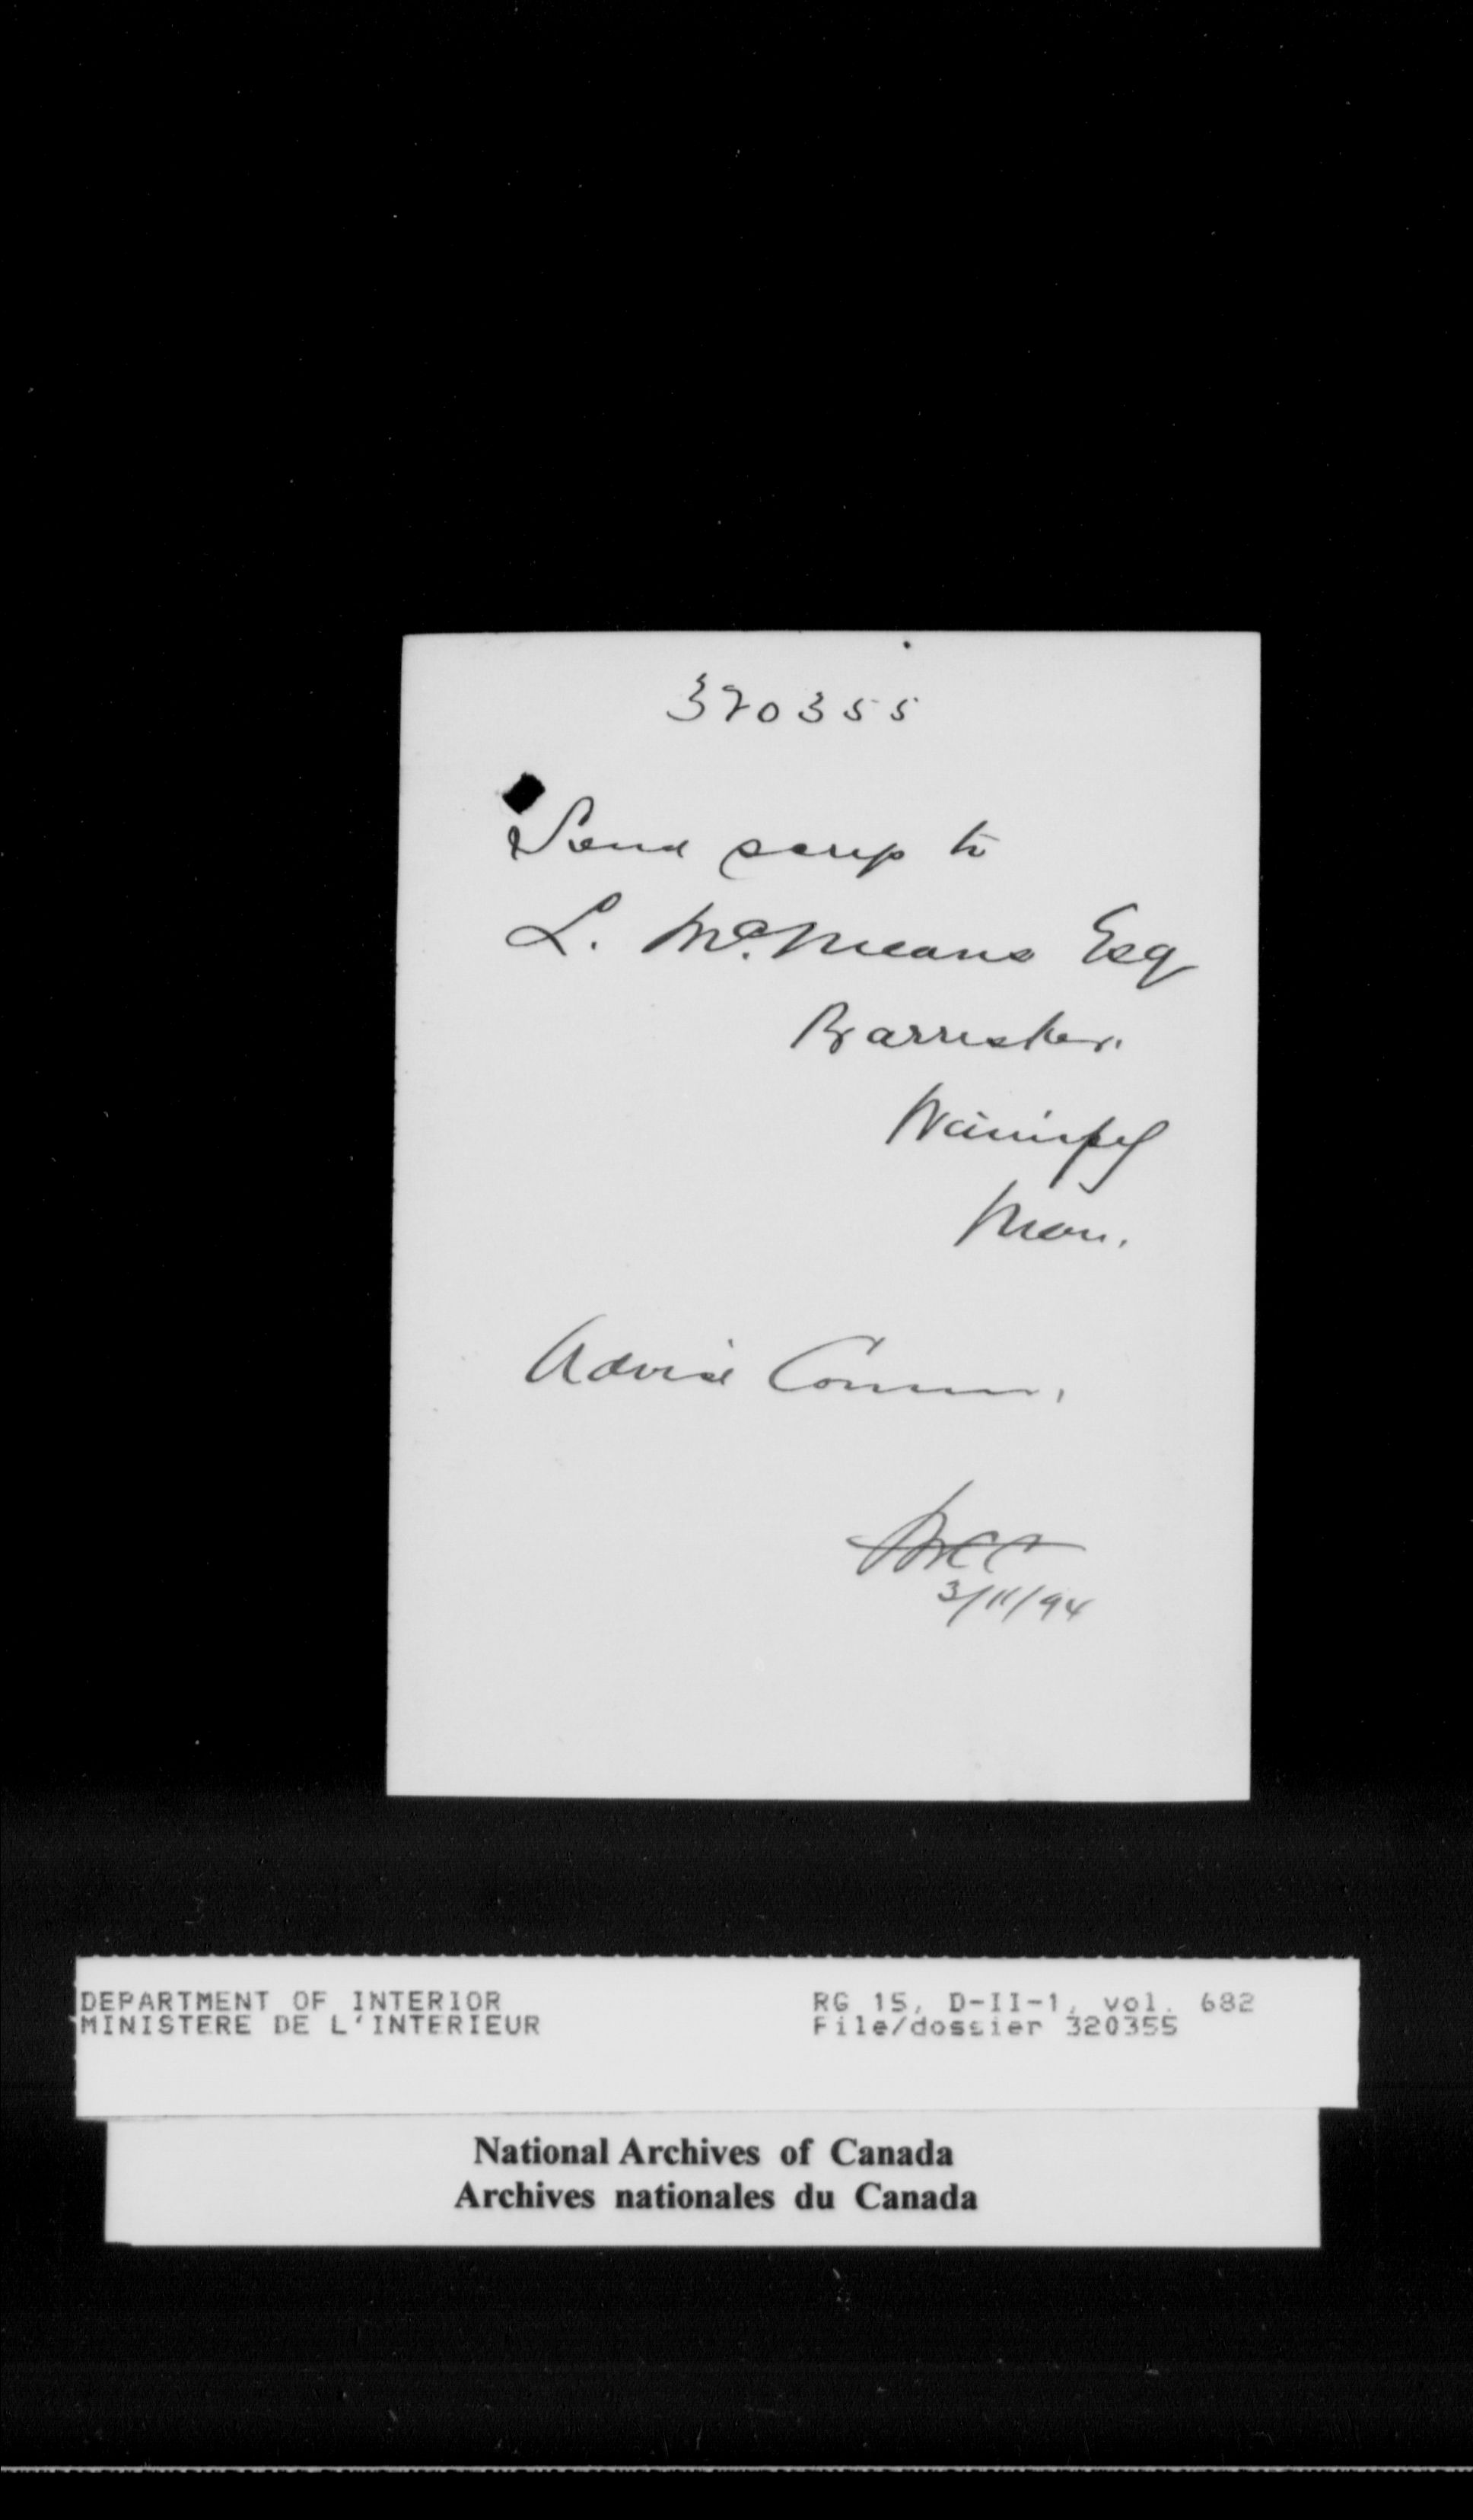 320355
Send scrip to
L. McMeans Esq
Barrister.
Winnipeg
Man.
Advise Comm.
3/11/94
DEPARTMENT OF INTERIOR
MINISTERE DE L'INTERIEUR
RG 15, D-II-1, vol. 682
File/dossier 320355
National Archives of Canada
Archives nationales du Canada